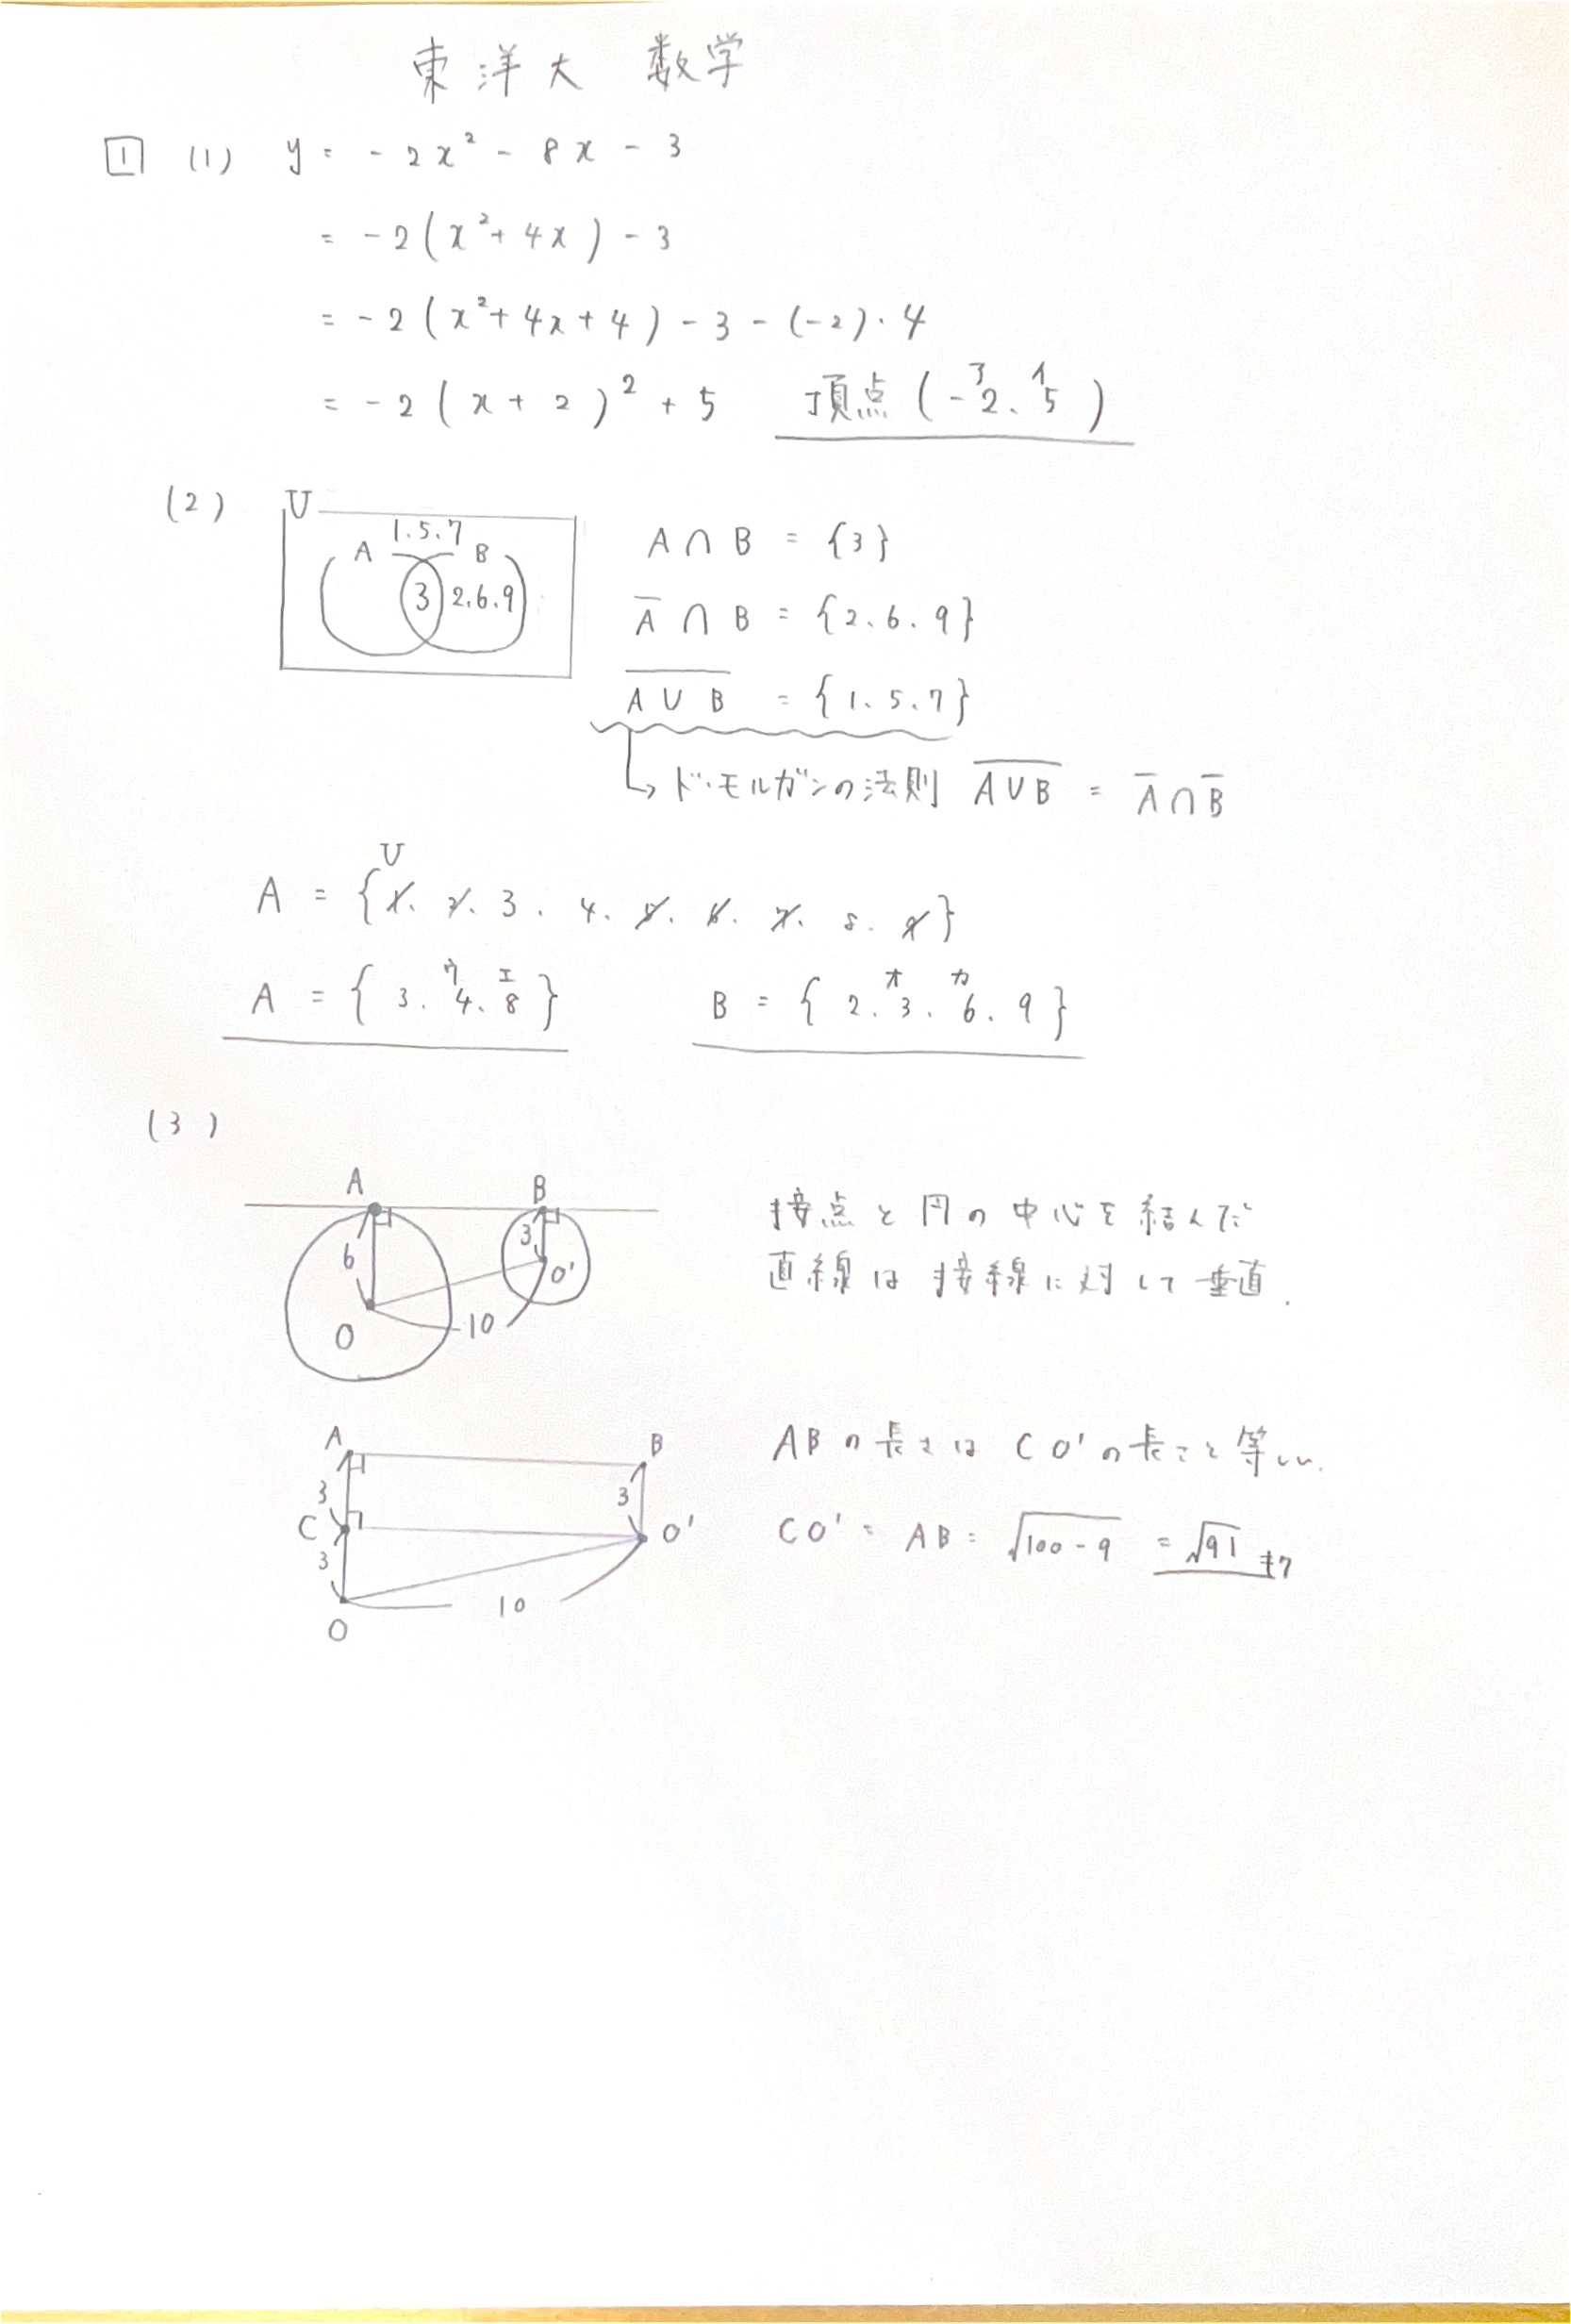 東洋大 数学
1 (1) y = -2x² - 8x - 3
= -2(x²+4x) - 3
= -2(x²+4x+4) - 3 - (-2)・4
= -2(x+2)² + 5 頂点(-2、5)
ア イ
(2) U
1.5.7
A B
3 2.6.9
A∩B = {3}
A̅∩B = {2、6、9}
A̅∪̅B̅ = {1、5、7}
ド・モルガンの法則 A̅∪̅B̅ = A̅∩B̅
U
A = {1. 2. 3. 4. 5. 6. 7. 8. 9}
ウ エ オ カ
A = {3. 4. 8} B = {2. 3. 6. 9}
(3)
A B
6 3
O O'
10
接点と円の中心を結んだ
直線は接線に対して垂直.
A B
3 3
C O'
3
10
O
ABの長さはCO'の長さと等しい.
CO' = AB = √100-9 = √91 キク